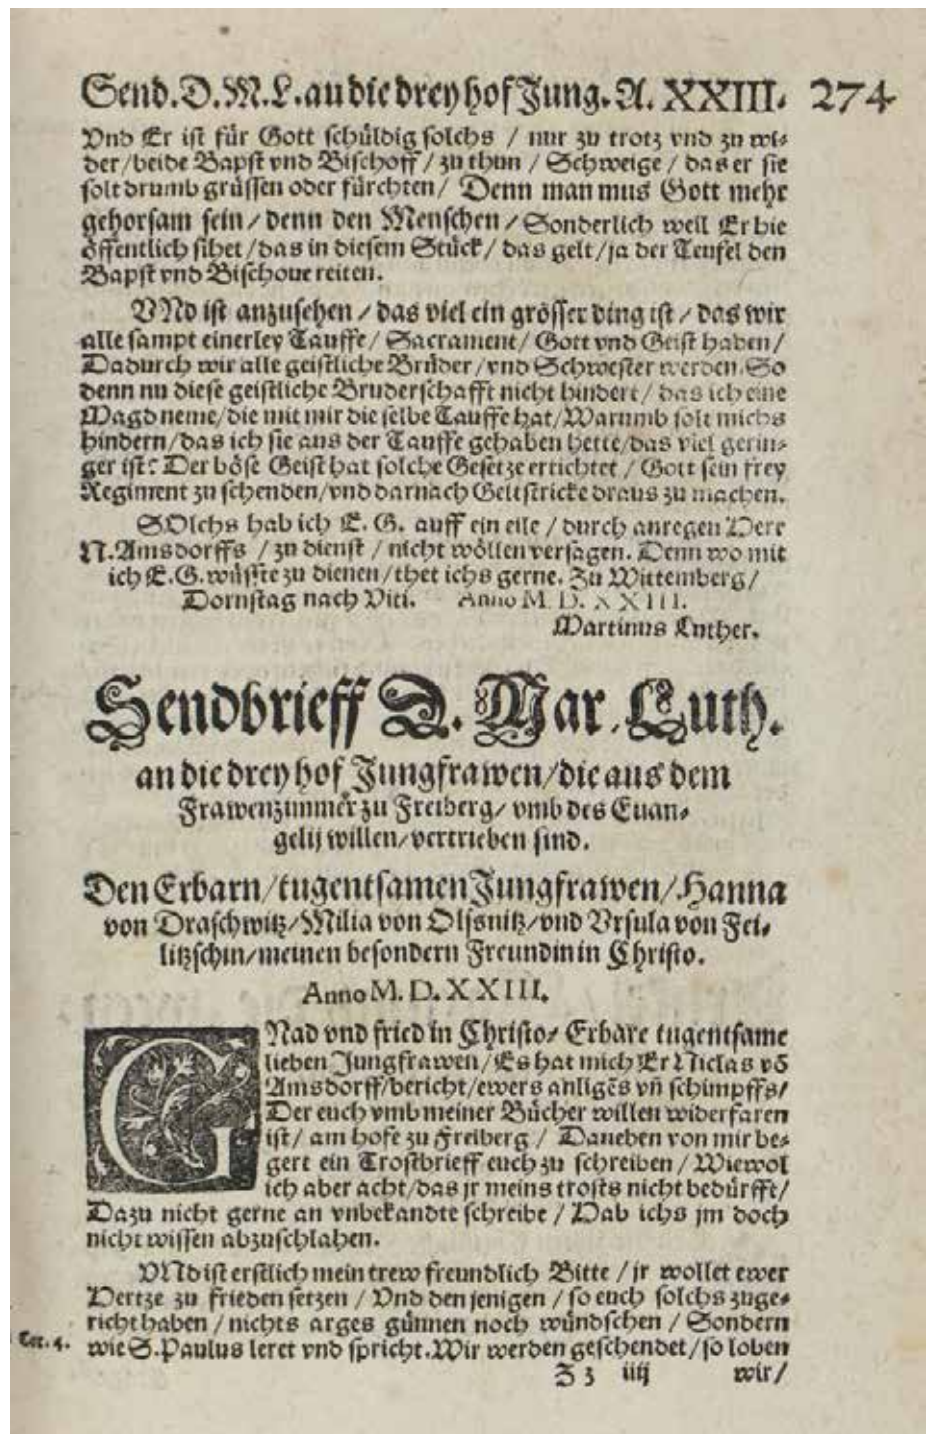 Send.D.M.L.an die drey hof Jung.A.XXIII. 274
Vnd Er ist für Gott schüldig solchs / nur zu trotz vnd zu wi-
der/beide Bapst vnd Bischoff/zu thun / Schweige / das er sie
solt drumb grüssen oder fürchten/ Denn man mus Gott mehr
gehorsam sein/denn den Menschen/Sonderlich weil Er hie
öffentlich sihet/das in diesem Stück/das gelt/ja der Teufel den
Bapst vnd Bischoue reiten.
VNd ist anzusehen/das viel ein grösser ding ist/das wir
alle sampt einerley Tauffe/Sacrament/Gott vnd Geist haben/
Dadurch wir alle geistliche Brüder/vnd Schwester werden.So
denn nu diese geistliche Bruderschafft nicht hindert/das ich eine
Magd neme/die mit mir die selbe Tauffe hat/Warumb solt michs
hindern/das ich sie aus der Tauffe gehaben hette/das viel gerin-
ger ist? Der böse Geist hat solche Gesetze ertichtet / Gott sein frey
Regiment zu schenden/vnd darnach Geltstricke draus zu machen.
SOlchs hab ich E. G. auff ein eile / durch anregen Herr
N.Amsdorffs /zu dienst / nicht wöllen versagen. Denn wo mit
ich E.G.wüsste zu dienen/thet ichs gerne. Zu Wittemberg/
Dornstag nach Viti. Anno M. D. XXIII.
Martinus Luther.
Sendbrieff D. Mar. Luth.
an die drey hof Jungfrawen/die aus dem
Frawenzimmer zu Freiberg/vmb des Euan-
gelij willen/vertrieben sind.
Den Erbarn/tugentsamen Jungfrawen/Hanna
von Draschwitz/Milia von Olssnitz/vnd Vrsula von Fei-
litzschin/meinen besondern Freundin in Christo.
Anno M. D. XXIII.
GNad vnd fried in Christo/ Erbare tugentsame
lieben Jungfrawen/Es hat mich Er Niclas vō
Amsdorff/bericht/ewers anligēs vn̄ schimpffs/
Der euch vmb meiner Bücher willen widerfaren
ist/ am hofe zu Freiberg / Daneben von mir be-
gert ein Trostbrieff euch zu schreiben / Wiewol
ich aber acht/das jr meins trosts nicht bedürfft/
Dazu nicht gerne an vnbekandte schreibe / Hab ichs jm doch
nicht wissen abzuschlahen.
VNd ist erstlich mein trew freundlich Bitte / jr wollet ewer
Hertze zu frieden setzen / Vnd den jenigen / so euch solchs zuge-
richt haben / nichts arges günnen noch wündschen / Sondern
wie S.Paulus leret vnd spricht.Wir werden geschendet/so loben
Z z iiij wir/